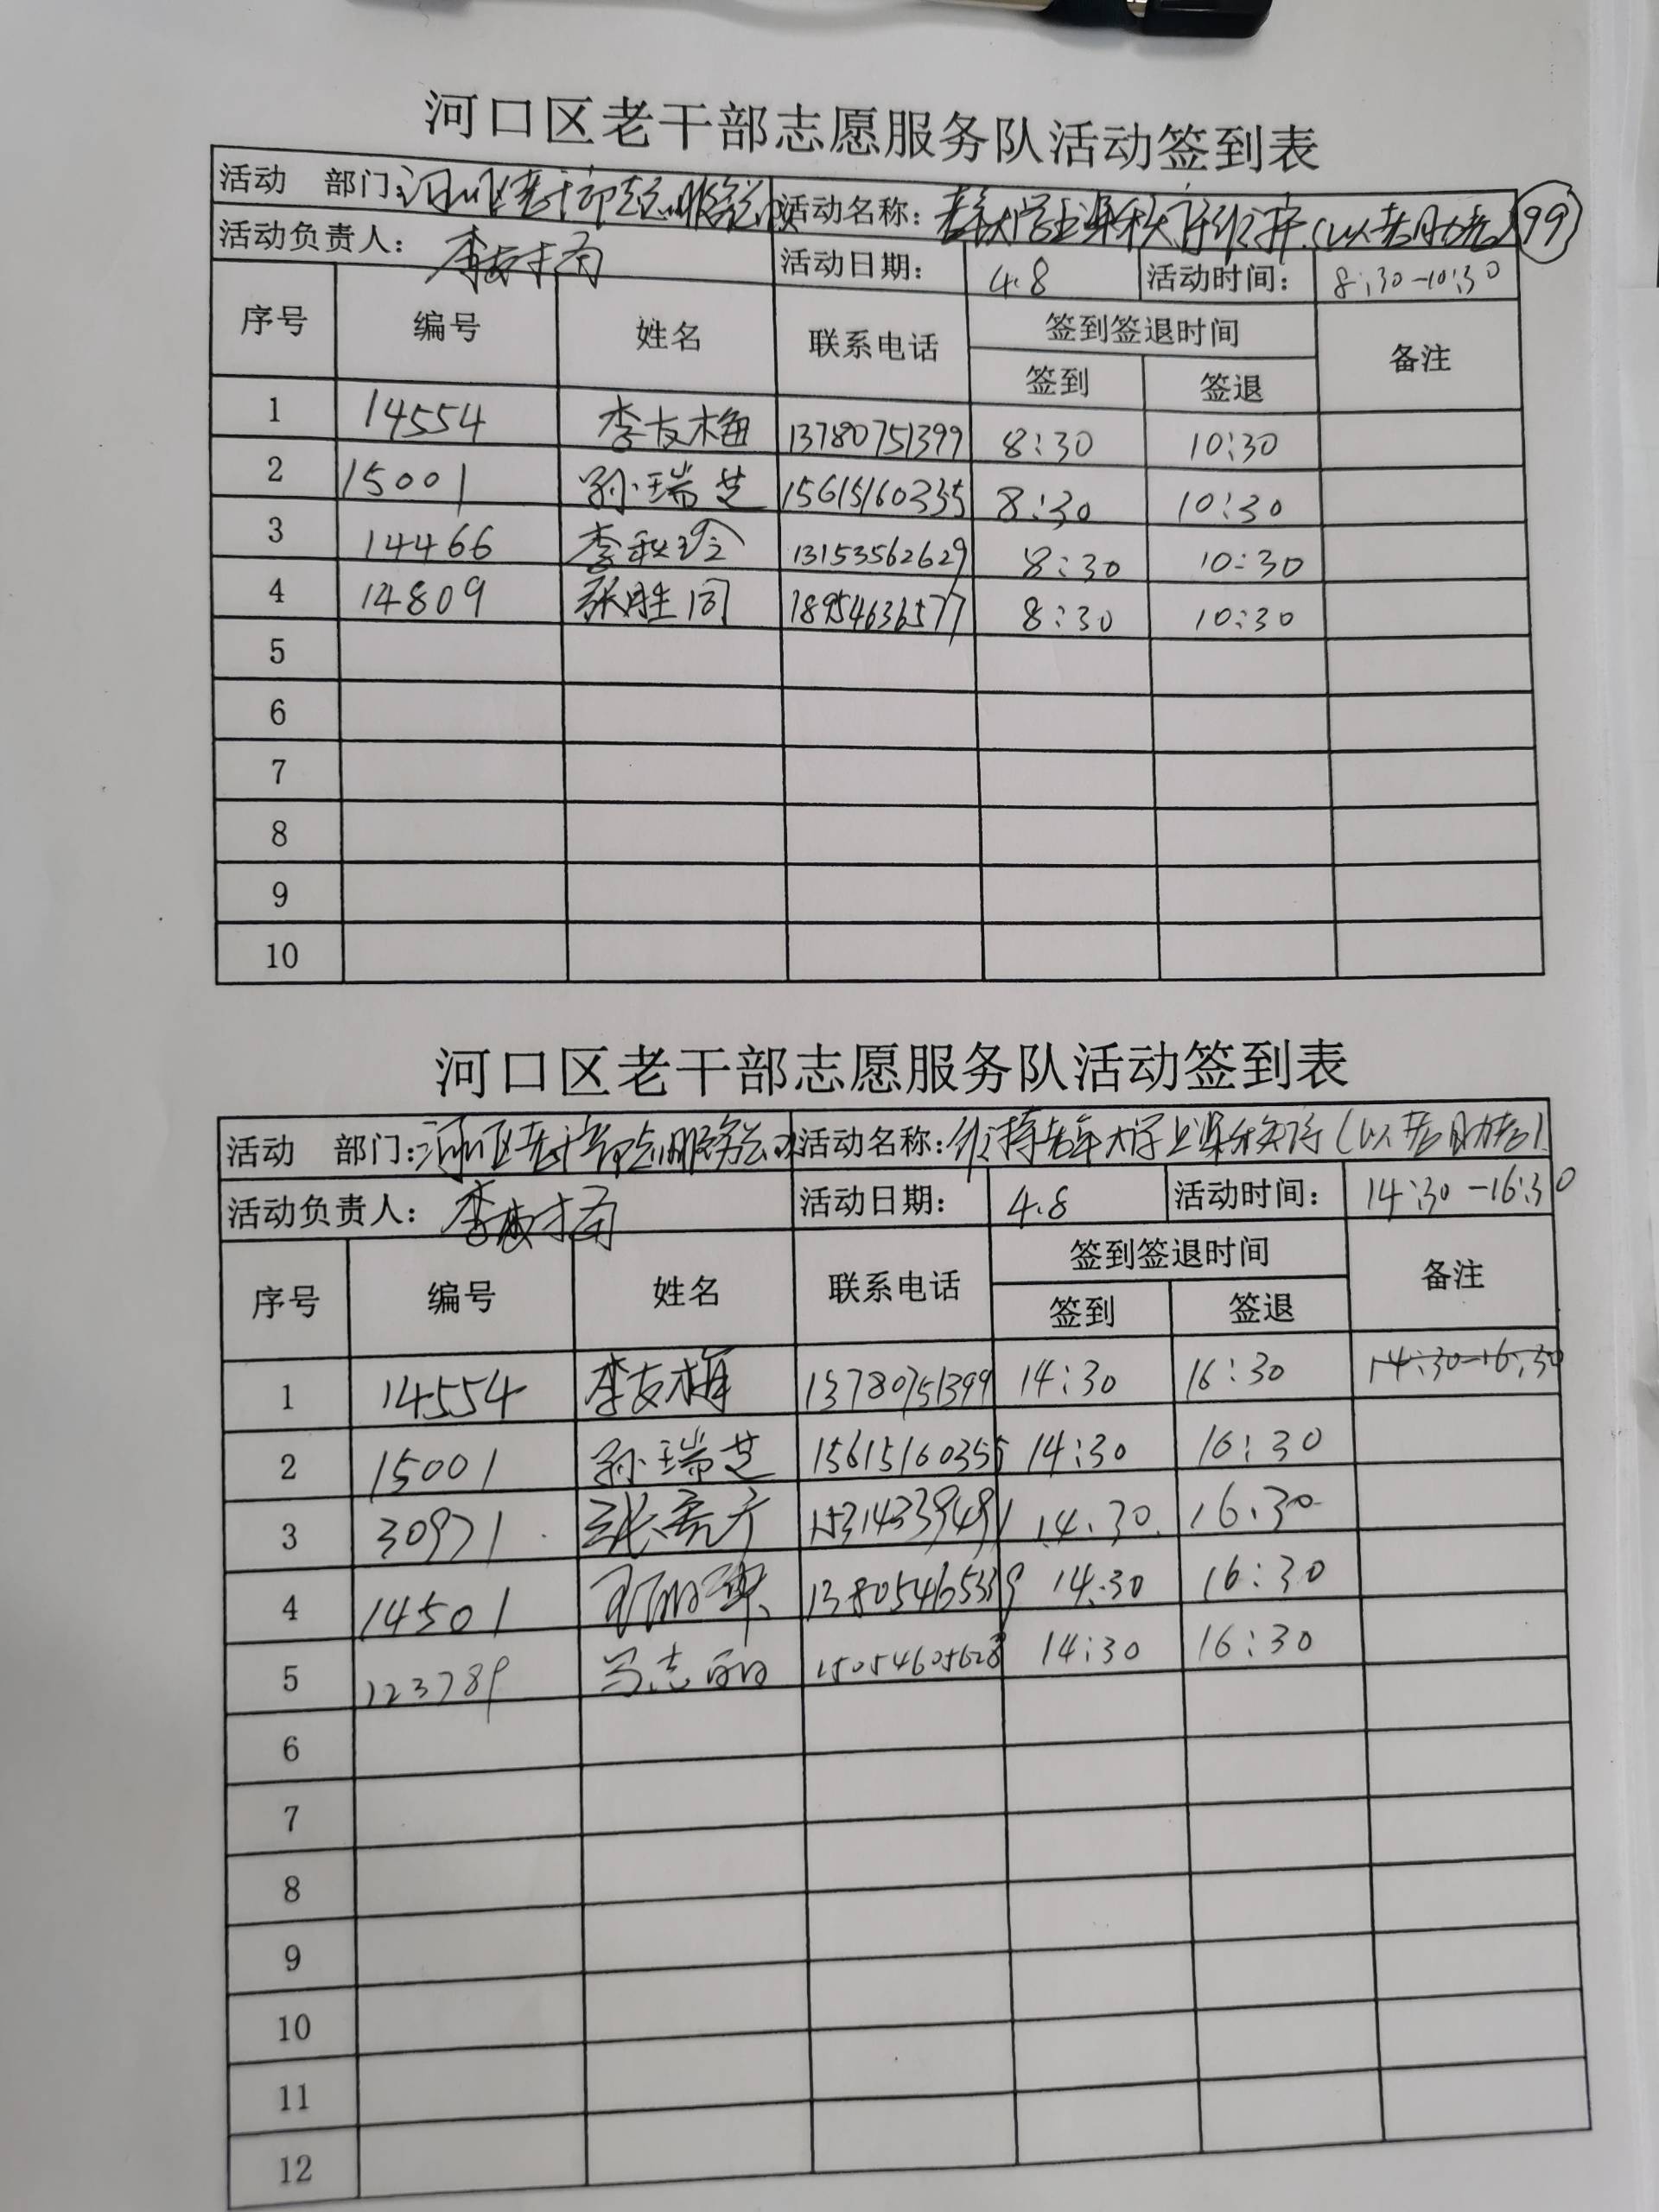 河口区老干部志愿服务队活动签到表
活动 部门: 河口区老干部志愿服务总队 活动名称: 老年大学上课秩序维持(以老助老) 99
活动负责人: 活动日期: 4.8 活动时间: 8:30-10:30
序号 编号 姓名 联系电话 签到签退时间 备注
签到 签退
1 14554 李友梅 13780751399 8:30 10:30
2 15001 孙瑞芝 15615160355 8:30 10:30
3 14466 李秋玲 13153562629 8:30 10:30
4 14809 张胜同 18954636577 8:30 10:30
5
6
7
8
9
10
河口区老干部志愿服务队活动签到表
活动 部门: 河口区老干部志愿服务总队 活动名称: 维持老年大学上课秩序(以老助老)
活动负责人: 活动日期: 4.8 活动时间: 14:30-16:30
序号 编号 姓名 联系电话 签到签退时间 备注
签到 签退
1 14554 李友梅 13780751399 14:30 16:30 14:30-16:30
2 15001 孙瑞芝 15615160355 14:30 16:30
3 30971 15314339491 14.30. 16.30
4 14501 13805465339 14:30 16:30
5 123789 马志丽 15054605628 14:30 16:30
6
7
8
9
10
11
12